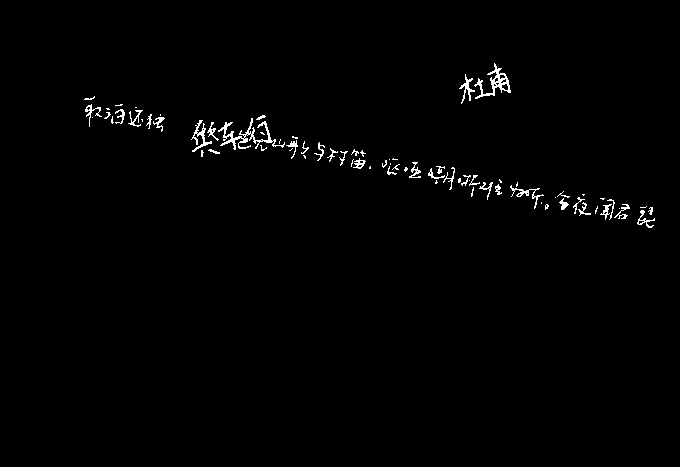 杜甫
取酒还独
兵车行
山歌与村笛，呕哑嘲哳难为听。今夜闻君琵